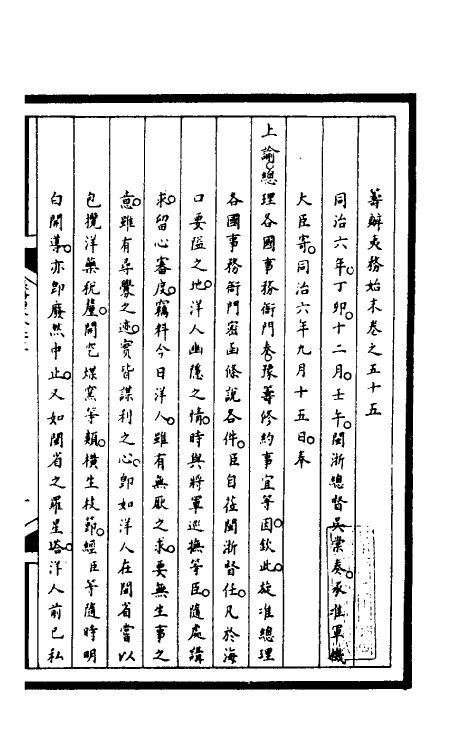 籌辦夷務始末卷之五十五
同治六年。丁卯。十二月。壬午。閩浙總督吳棠奏。承准軍機
大臣寄。同治六年九月十五日。奉
上諭。總理各國事務衙門奏。豫籌修約事宜等因。欽此。旋准總理
各國事務衙門密函條說各件。臣自莅閩浙督任。凡於海
口要隘之地。洋人幽隱之情。時與將軍巡撫等臣。隨處講
求。留心審度。竊料今日洋人。雖有無厭之求。要無生事之
意。雖有尋釁之迹。實皆謀利之心。即如洋人在閩省嘗以
包攬洋藥稅釐。開挖煤窯等類。橫生枝節。經臣等隨時明
白開導。亦即廢然中止。又如閩省之羅星塔。洋人前已私